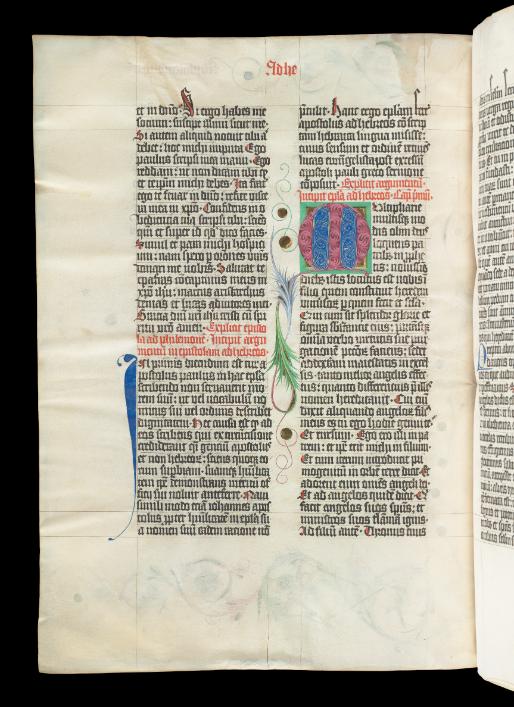 Ad he
et in dño. Si ergo habes me
socium: suscipe illum sicut me.
Si autem aliquid nocuit aut
debet: hoc michi imputa. Ego
paulus scripsi mea manu. Ego
reddam: ut non dicam tibi q̃
et teipm̃ michi debes. Ita frat̃
ego te fruar in dño: refice vi
scera mea in xp̃o. Confidens in o
bediencia tua scripsi tibi: sciens
qm̃ et super id qd̃ dico facies.
Simul et para michi hospici
um: nam spero p oraciones vr̃as
donari me vobis. Salutat te
epafras concaptivus meus in
xp̃o ihũ: marcus aristarchus
demas et lucas adiutores mei.
Gracia dñi nr̃i ihũ xp̃i cum spi
ritu vr̃o amen. Explicit episto
la ad philemonẽ. Incipit argu
mentum in epistolam ad hebreos.
In primis dicendum est cur a
postolus paulus in hac ep̃la
scribendo non servaverit mo
rem suum: ut vel vocabulũ no
minis sui vel ordinis describeret
dignitatem. Hec causa est q̃ ad
eos scribens qui ex circumcisione
crediderant q̃si gentiũ apostolus
et non hebreoꝝ: sciens quoqꝫ eo
rum supbiam. suamqꝫ hũilita
tem ip̃e demonstrans meritũ of
ficii sui noluit anteferre. Nam
simili modo etiã iohannes apo
stolus ꝓpter hũilitatẽ in ep̃la su
a nomen suũ eadem ratione nõ
p̃tulit. Hanc ergo ep̃lam fert̃
apostolus ad hebreos cõscrip
tam hebraica lingua misisse:
cuius sensum et ordinẽ retinẽs
lucas ewãgelista post excessũ
apostoli pauli greco sermone
cõposuit. Explicit argumentũ.
Incipit ep̃la ad hebreos. Cap̃ primũ.
Multipharie
multisqꝫ mo
dis olim de
us loquens pa
tribus in ꝓphe
tis: novissime
diebꝫ istis locutus est nobis ĩ
filio. quem constituit heredem
universoꝝ p quem fecit et sec̃la.
Qui cum sit splendor glorie et
figura substantie eius: portãsqꝫ
omnia verbo virtutis sue pur
gationẽ pctõꝝ faciens: sedet
ad dexteram maiestatis in excel
sis. tanto melior angelis effec
tus: quanto differentius p̃ illis
nomen hereditavit. Cui em̃
dixit aliquando angeloꝝ filius
meus es tu ego hodie genui te.
Et rursum. Ego ero illi in pa
trem: et ip̃e erit michi in filium.
Et cum iterum introducit pri
mogenitũ in orbẽ terre dicit. Et
adorent eum om̃es angeli dei.
Et ad angelos quidẽ dicit. Qui
facit angelos suos sp̃us: et
ministros suos flãmã ignis.
Ad filiũ autẽ. Thronus tuus